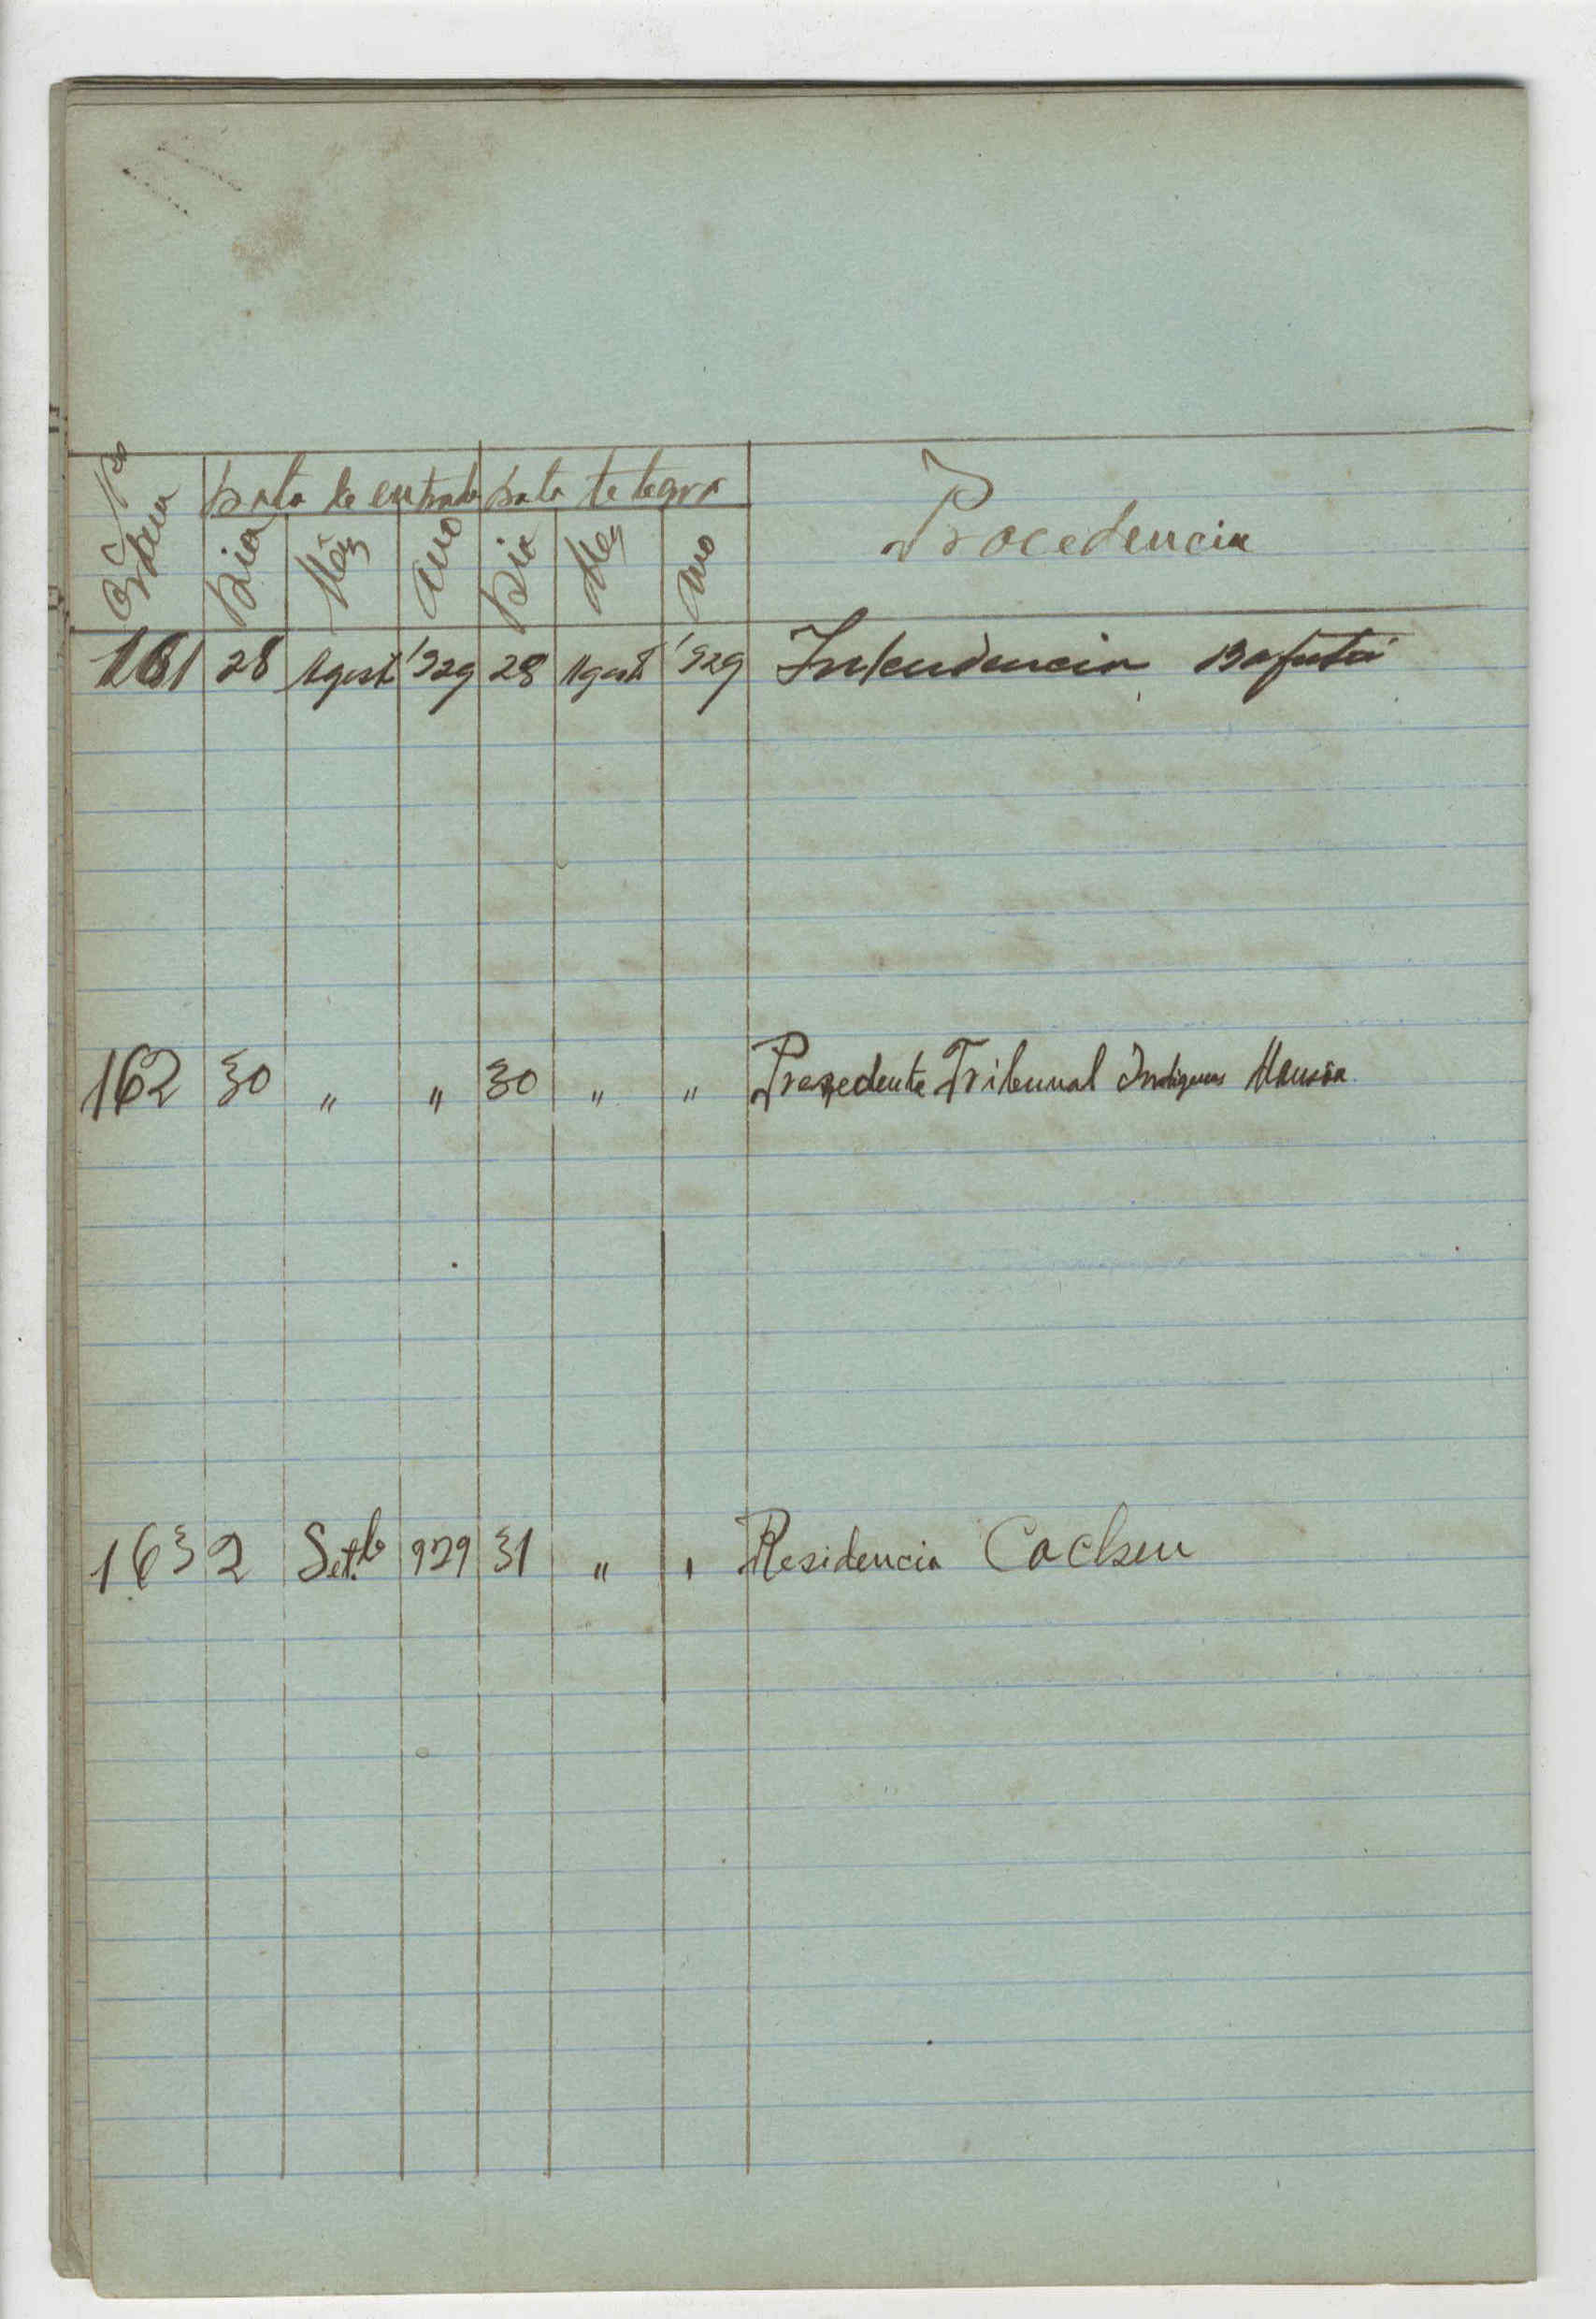 Nº Ordem
Data de entrada Data telegra Procedencia
Dia Mês Ano Dia Mes Ano
161 28 Agost 929 28 Agost 929 Intendencia Bafatá
162 30 " " 30 " " Prezedente Tribunal Indigenas Mansôa
163 2 Set.bo 929 31 " " Residencia Cacheu